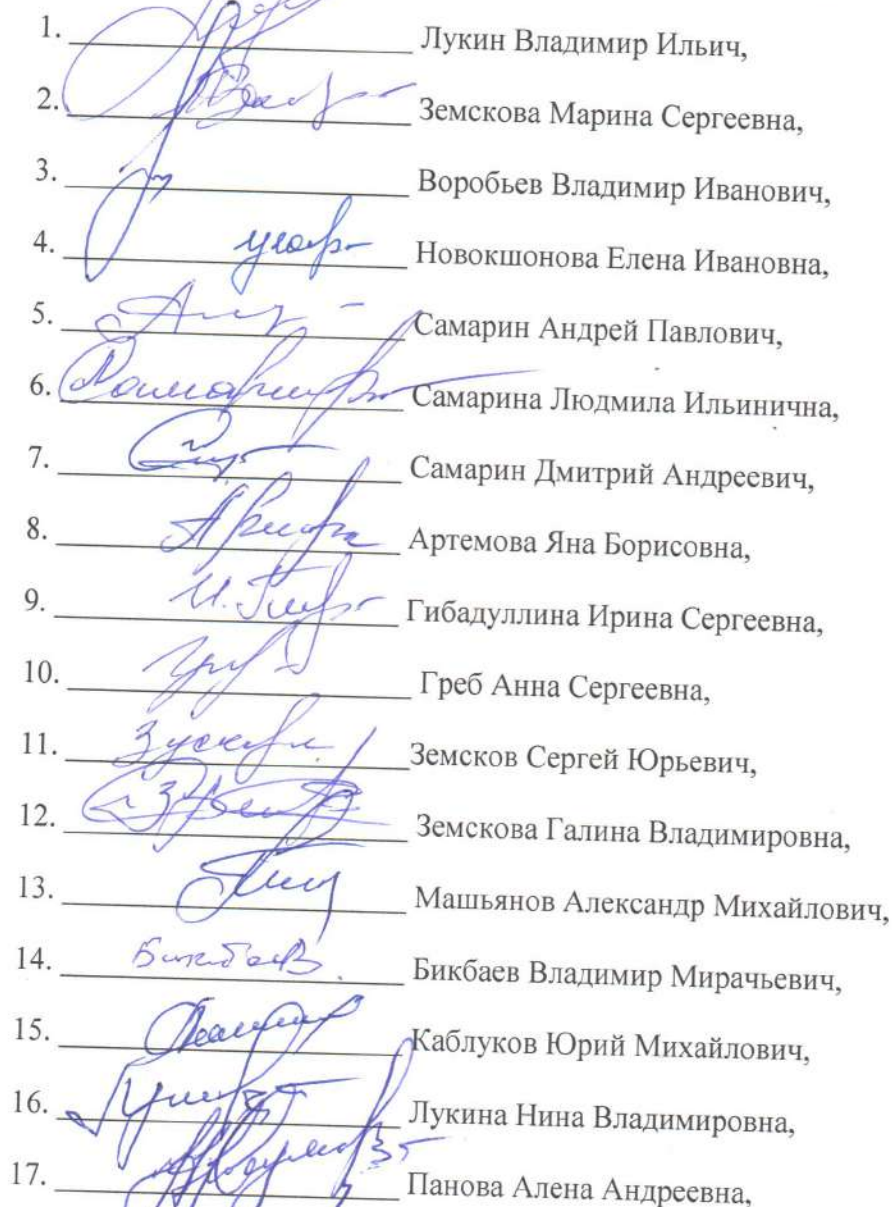 1. Лукин Владимир Ильич,
2. Земскова Марина Сергеевна,
3. Воробьев Владимир Иванович,
4. Новокшонова Елена Ивановна,
5. Самарин Андрей Павлович,
6. Самарина Людмила Ильинична,
7. Самарин Дмитрий Андреевич,
8. Артемова Яна Борисовна,
9. Гибадуллина Ирина Сергеевна,
10. Греб Анна Сергеевна,
11. Земсков Сергей Юрьевич,
12. Земскова Галина Владимировна,
13. Машьянов Александр Михайлович,
14. Бикбаев Владимир Мирачьевич,
15. Каблуков Юрий Михайлович,
16. Лукина Нина Владимировна,
17. Панова Алена Андреевна,